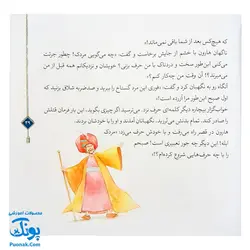 که هیچ‌کس بعد از شما باقی نمی‌ماند!»
ناگهان هارون با خشم از جایش برخاست و گفت: «چه می‌گویی مردک؟ چطور جرئت
می‌کنی این‌طور سخت و دردناک با من حرف بزنی؟ خویشان و نزدیکانم همه قبل از من
می‌میرند؟!! آن وقت من چه‌کار کنم؟»
آنگاه رو به نگهبان کرد و گفت: «فوری این مرد گستاخ را ببرید و صدضربه شلاق بزنید که
اول صبح این‌طور مرا آزرده است!»
خواب‌گزار بیچاره دیگر کلمه‌ای حرف نزد. می‌ترسید اگر چیزی بگوید، این بار فرمان قتلش
را صادر کنند. تمام بدنش می‌لرزید. نگهبانان آمدند و او را با خودشان بردند.
هارون در قصر راه می‌رفت و با خودش حرف می‌زد: «مردک
ابله! این دیگر چه جور تعبیری است؟ صبحم
را با چه حرف‌هایی شروع کرده‌ام؟!»
محصولات آموزشی
پونک
Poonak.Com